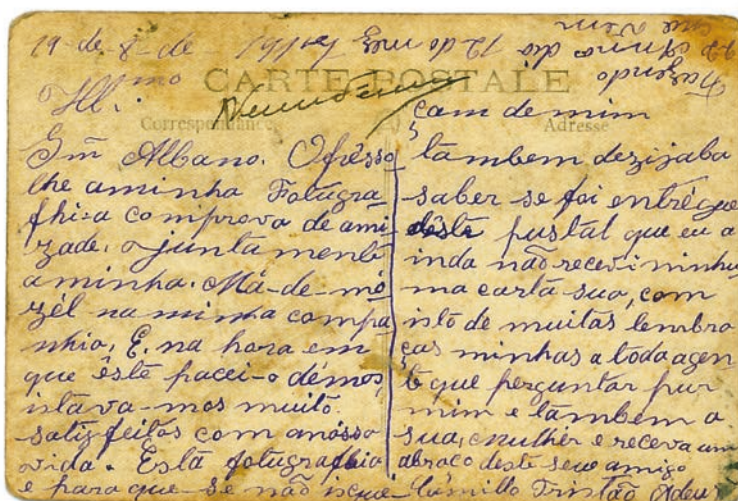 19-de-8-de-1917
Fazendo
22 anno dia 12 do mez
que vem
Ill.mo
CARTE POSTALE
Correspondance
Adresse
Snr Albano. Ofrêsso
lhe aminha Fotugra
fhia comprova de ami
zade. ajuntamente
aminha. Má-de-mó
zél na minha compa
nhia. E. na hora em
que êste pacei-o démos,
istava-mos muito
satisfeitos com anósso
vida. Esta fotugrafhia
e para que se não isque
çam de mim
tambem dezijaba
saber se foi entrégue
dêste pustal que eu a
inda não recevi ninhu
ma carta sua, com
isto de muitas lembra
ças minhas a toda agen
te que perguntar pur
mim e tambem a
sua, mulher e receva um
abraço deste seu amigo
Camillo Tristão Adeus